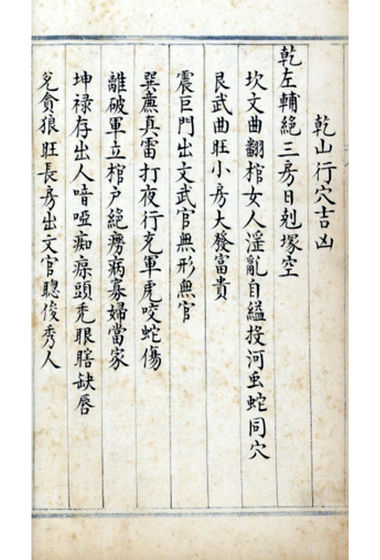 乾山行穴吉凶
乾左輔絕三房日剋塚空
坎文曲翻棺女人淫亂自縊投河虫蛇同穴
艮武曲旺小房大發富貴
震巨門出文武官無形無官
巽廉真雷打夜行充軍虎咬蛇傷
離破軍立棺戶絕癆病寡婦當家
坤祿存出人喑啞痴瘝頭禿眼瞎缺唇
兌貪狼旺長房出文官聰俊秀人